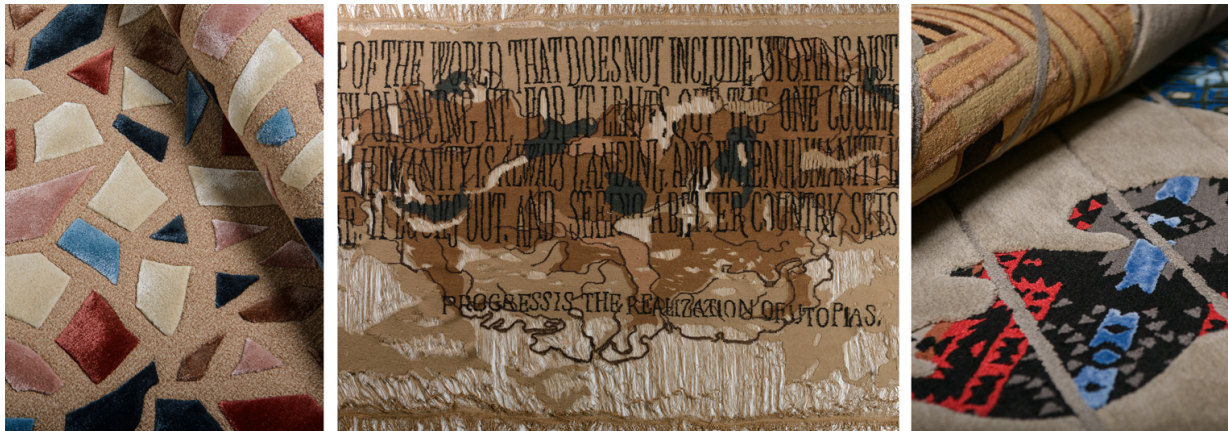 OF THE WORLD THAT DOES NOT INCLUDE UTOPIA IS NOT
GLANCING AT, FOR IT LEAVES OUT THE ONE COUNT
HUMANITY IS ALWAYS LANDING. AND WHEN HUMANITY
IT LOOKS OUT, AND SEEING A BETTER COUNTRY SETS
PROGRESS IS THE REALIZATION OF UTOPIAS.